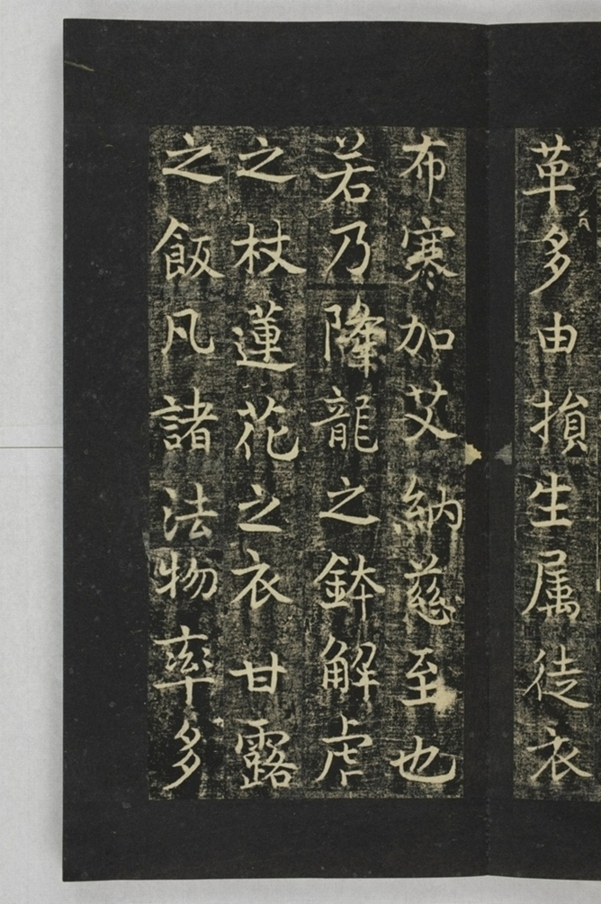 革多由損生属徒衣
布寒加艾納慈至也
若乃降龍之鉢解虎
之杖蓮花之衣甘露
之飯凡諸法物率多